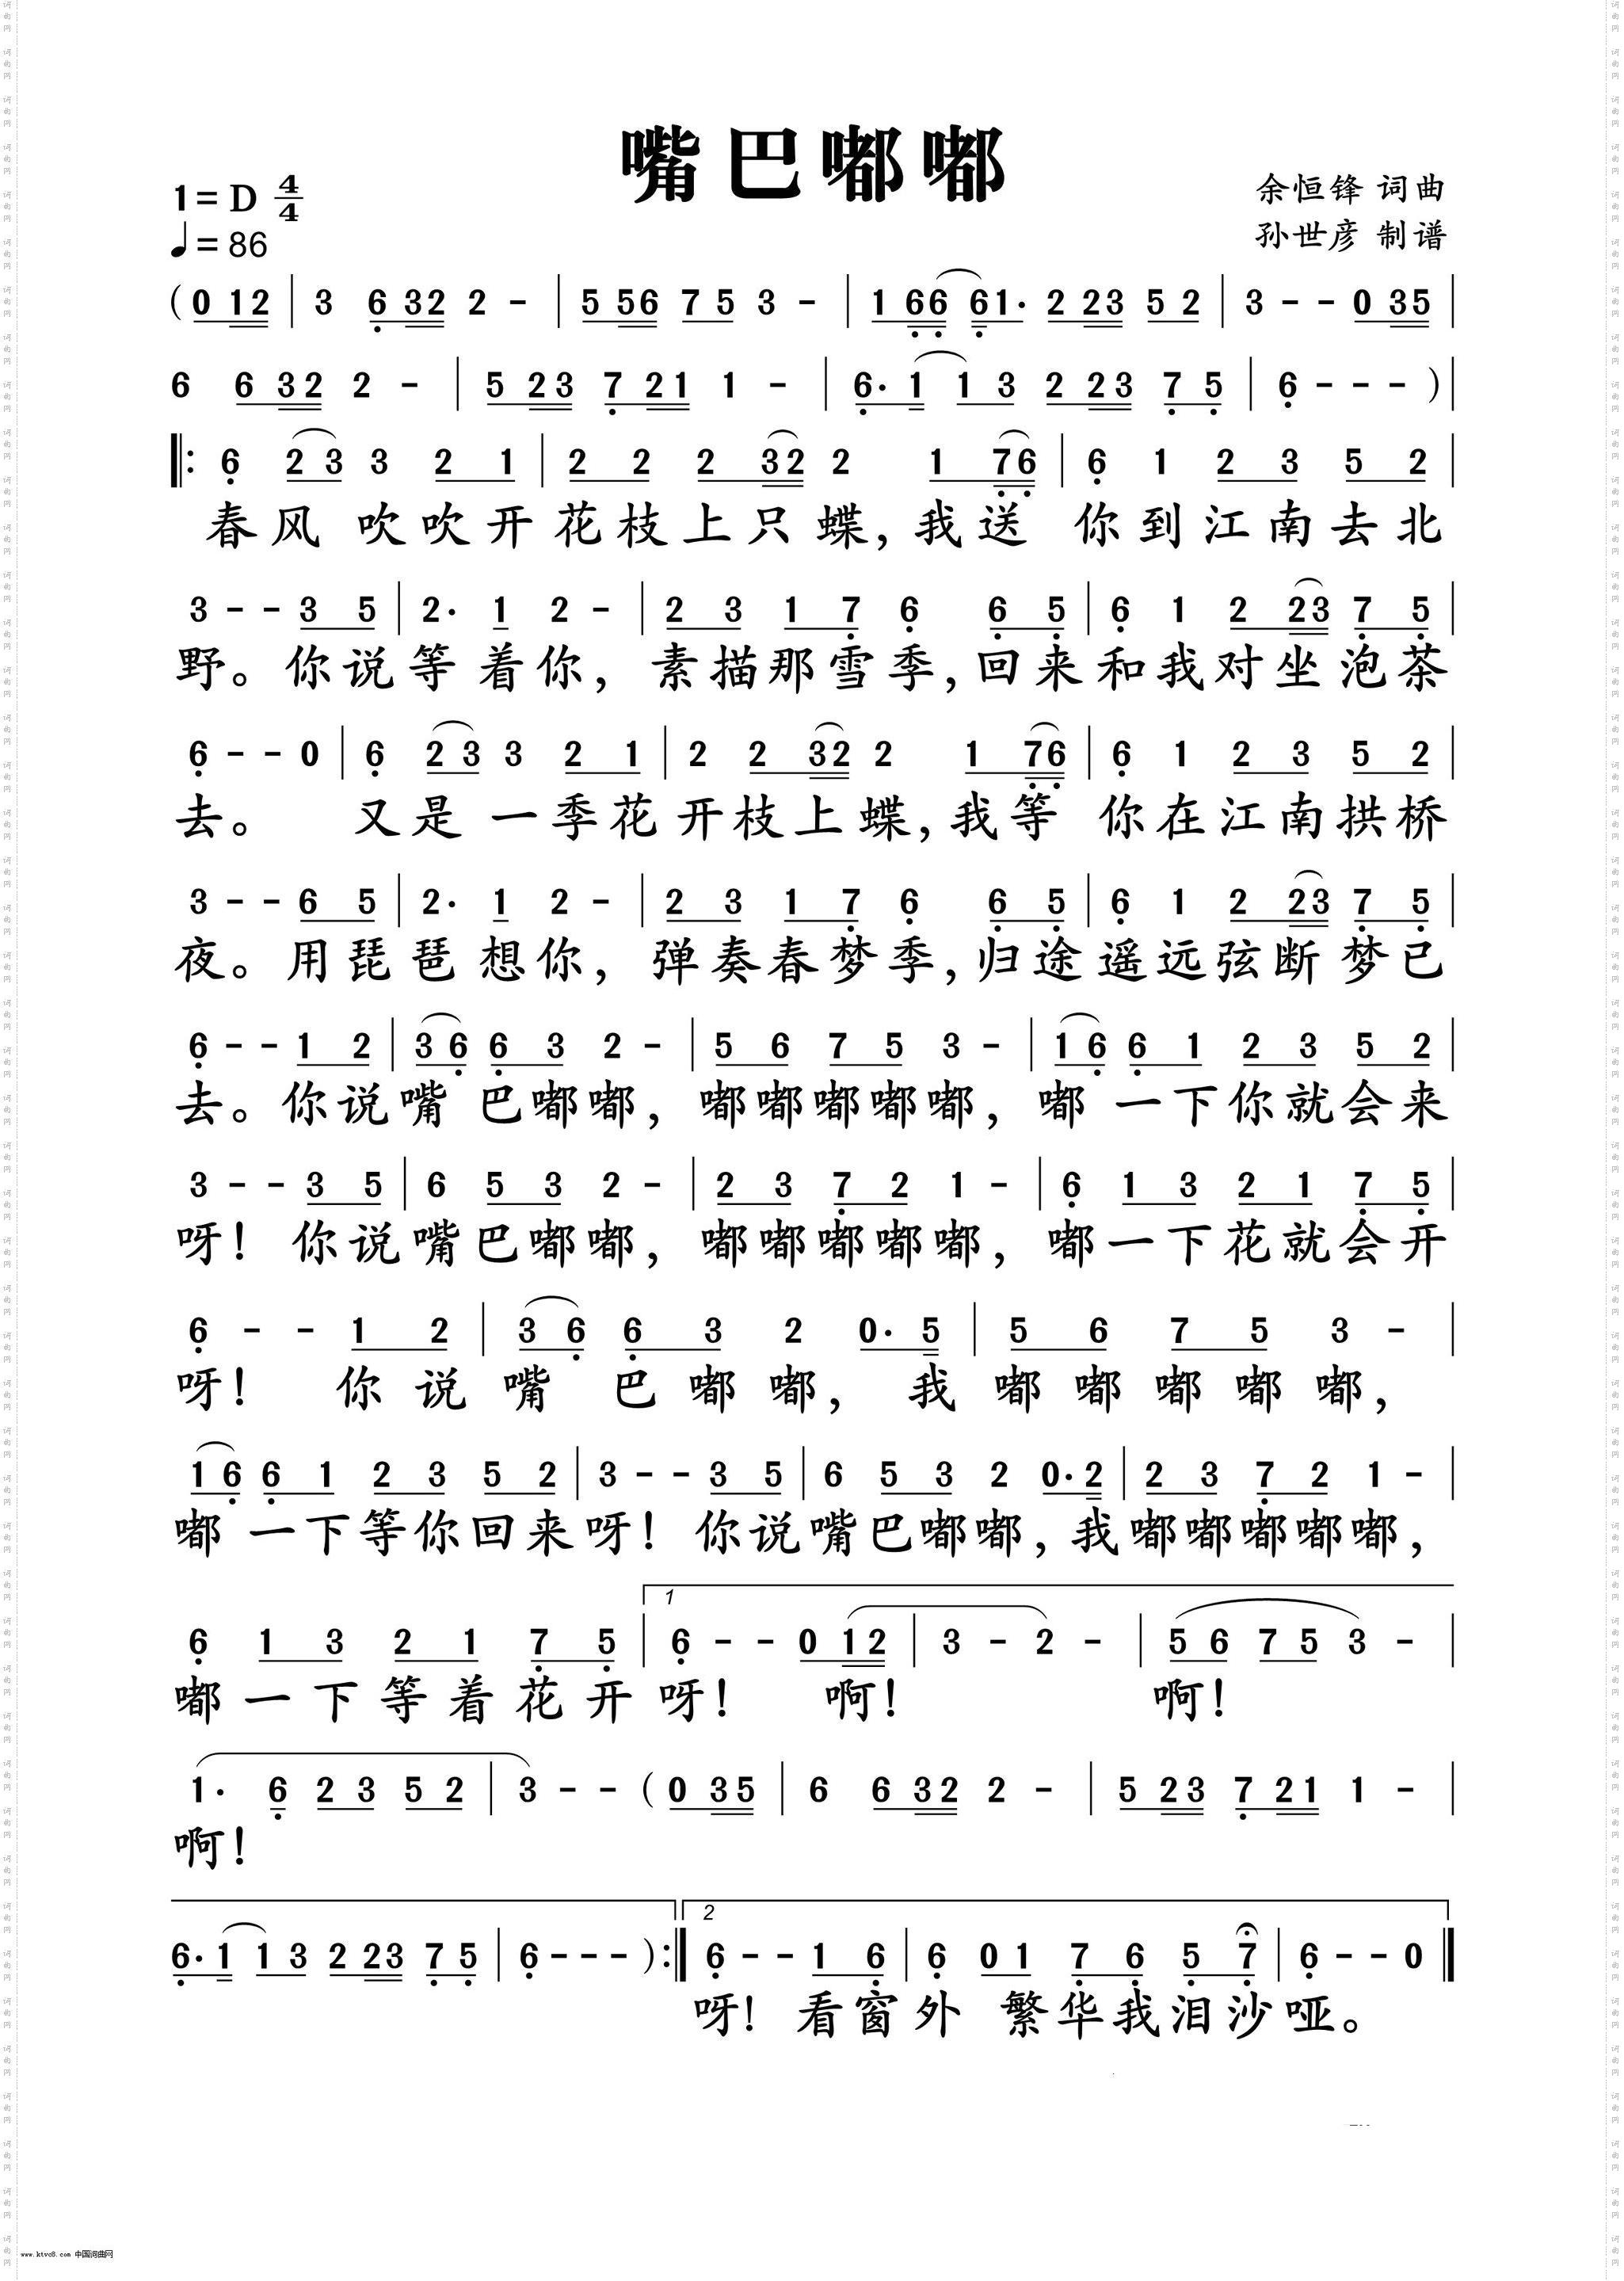 嘴巴嘟嘟
1=D 4/4
♩=86
余恒锋 词曲
孙世彦 制谱
(0 12 | 3 6 32 2 - | 5 56 7 5 3 - | 1 66 61· 2 23 5 2 | 3 - - 0 35 |
6 6 32 2 - | 5 23 7 21 1 - | 6· 1 1 3 2 23 7 5 | 6 - - - ) |
‖: 6 2 3 3 2 1 | 2 2 2 32 2 1 76 | 6 1 2 3 5 2 |
春风 吹吹开花枝上只蝶,我送 你到江南去北
3 - - 3 5 | 2· 1 2 - | 2 3 1 7 6 6 5 | 6 1 2 23 7 5 |
野。你说等着你,素描那雪季,回来和我对坐泡茶
6 - - 0 | 6 2 3 3 2 1 | 2 2 32 2 1 76 | 6 1 2 3 5 2 |
去。 又是 一季花开枝上蝶,我等 你在江南拱桥
3 - - 6 5 | 2· 1 2 - | 2 3 1 7 6 6 5 | 6 1 2 23 7 5 |
夜。用琵琶想你,弹奏春梦季,归途遥远弦断梦已
6 - - 1 2 | 3 6 6 3 2 - | 5 6 7 5 3 - | 1 6 6 1 2 3 5 2 |
去。你说嘴 巴嘟嘟,嘟嘟嘟嘟嘟,嘟 一下你就会来
3 - - 3 5 | 6 5 3 2 - | 2 3 7 2 1 - | 6 1 3 2 1 7 5 |
呀!你说嘴巴嘟嘟,嘟嘟嘟嘟嘟,嘟一下花就会开
6 - - 1 2 | 3 6 6 3 2 0· 5 | 5 6 7 5 3 - |
呀! 你说嘴 巴嘟嘟,我嘟嘟嘟嘟嘟,
1 6 6 1 2 3 5 2 | 3 - - 3 5 | 6 5 3 2 0· 2 | 2 3 7 2 1 - |
嘟 一下等你回来呀!你说嘴巴嘟嘟,我嘟嘟嘟嘟嘟,
1
6 1 3 2 1 7 5 | 6 - - 0 12 | 3 - 2 - | 5 6 7 5 3 - |
嘟一下等着花开呀! 啊! 啊!
1· 6 2 3 5 2 | 3 - - (0 35 | 6 6 32 2 - | 5 23 7 21 1 - |
啊!
2
6· 1 1 3 2 23 7 5 | 6 - - - ) :‖ 6 - - 1 6 | 6 0 1 7 6 5 7 | 6 - - 0 ‖
呀!看窗外 繁华我泪沙哑。
www.ktvc8.com 中国词曲网